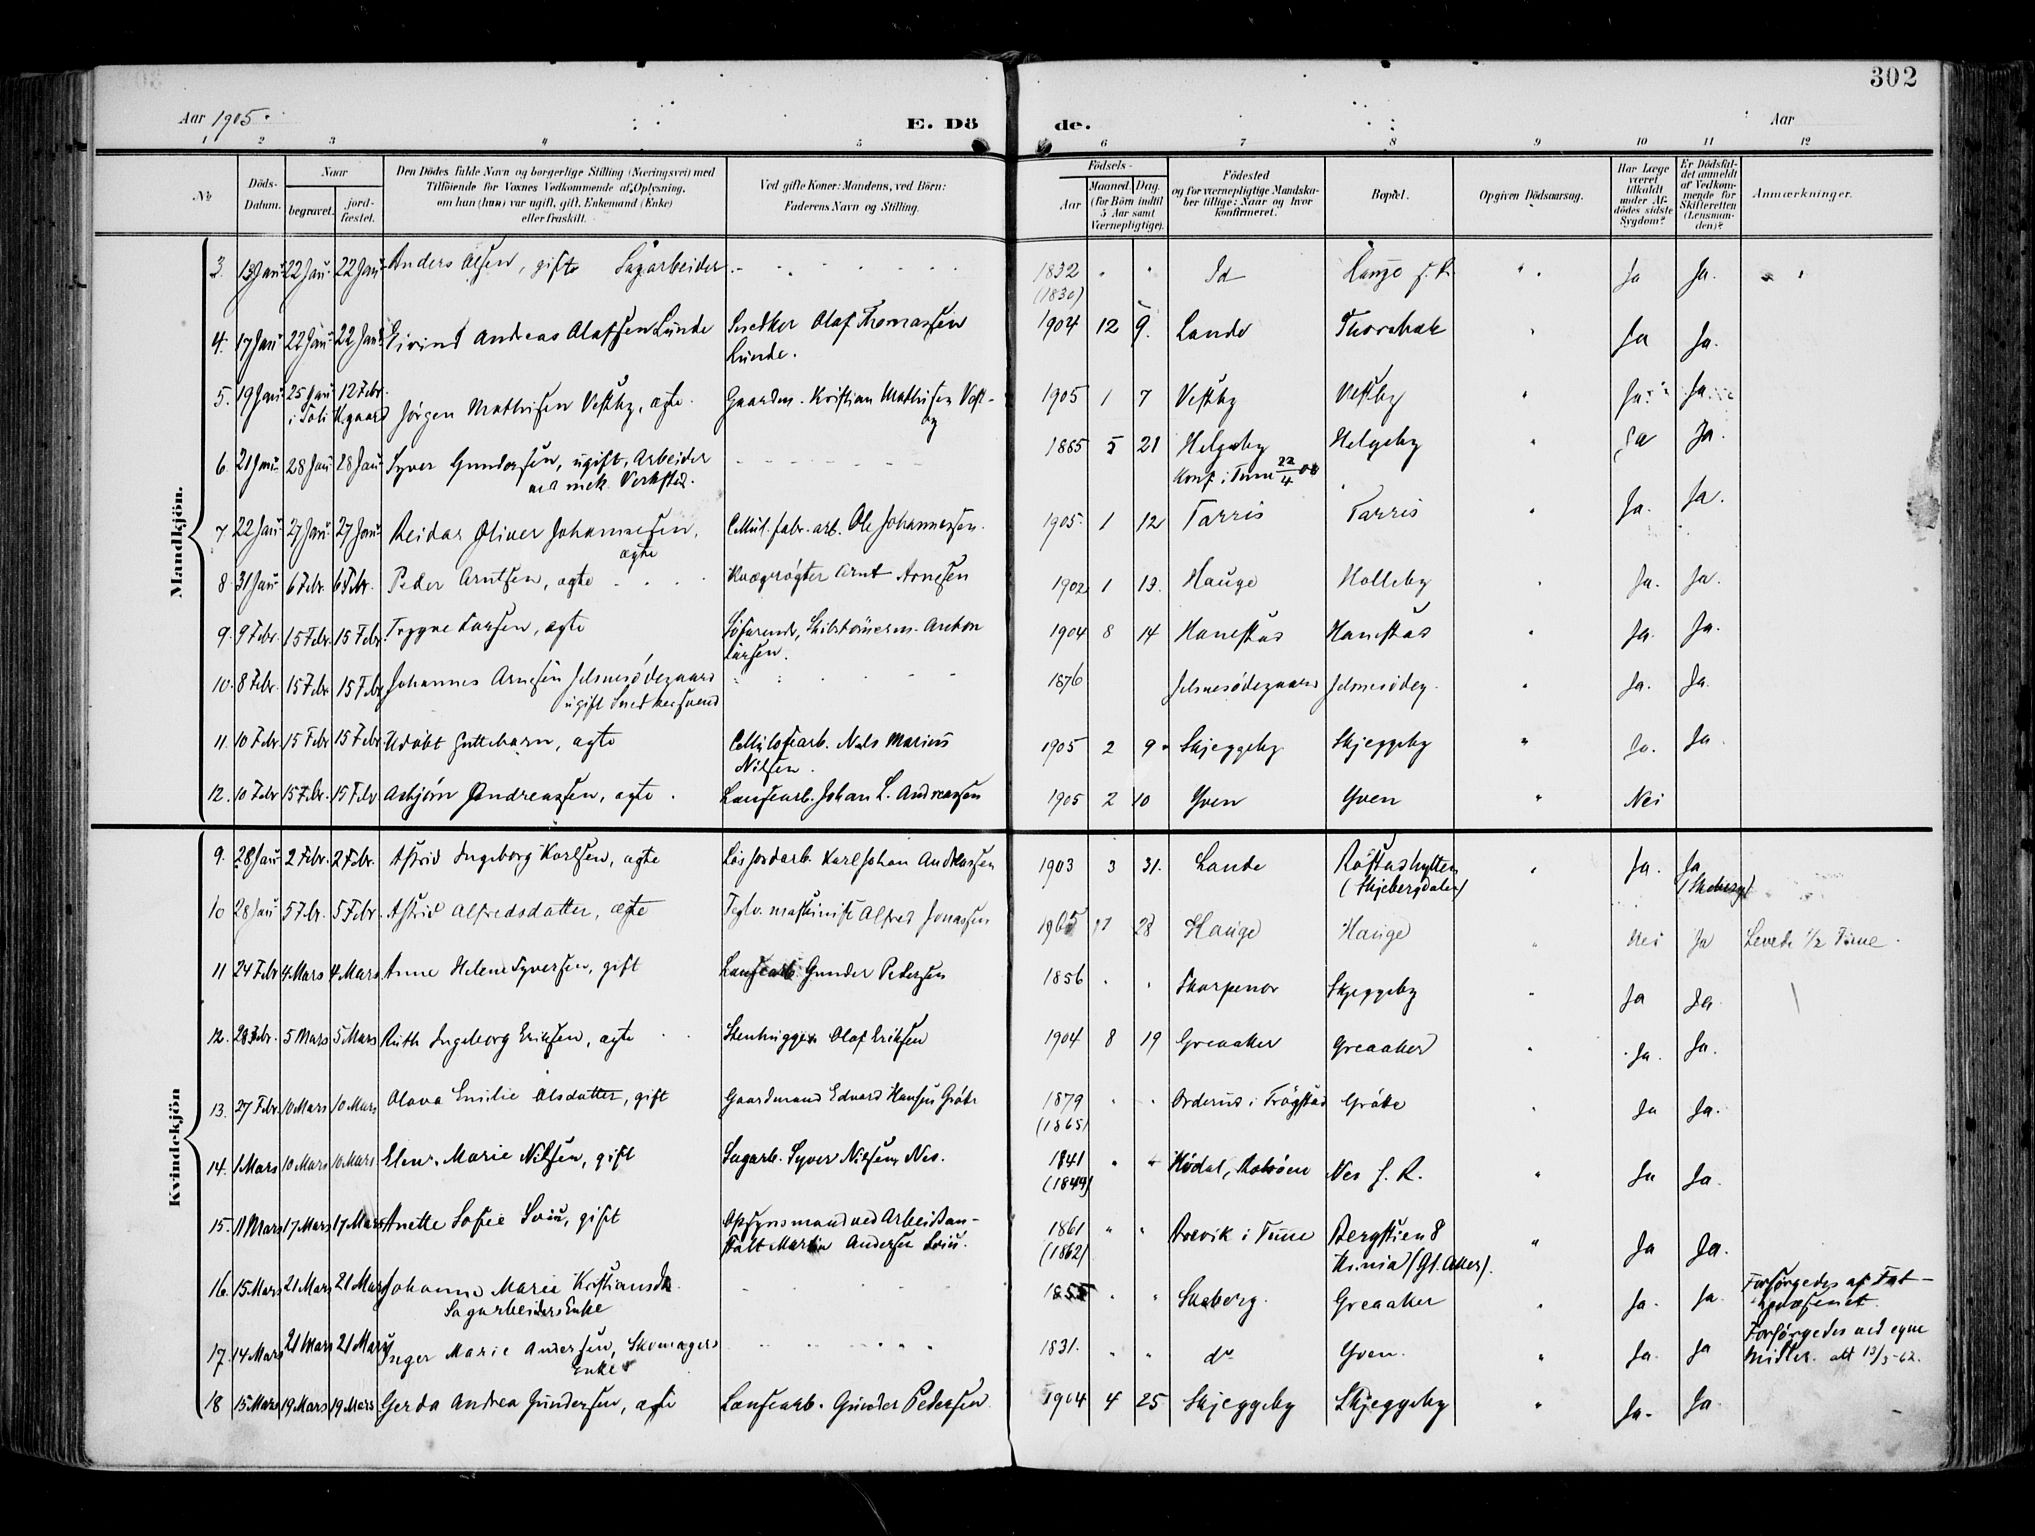 302
Aar 1905. E. Dö de. Aar
1 2 3 4 5 6 7 8 9 10 11 12
No
Döds-Datum.
Naar
begravet.
jord-fæstet.
Den Dödes fulde Navn og borgerlige Stilling (Næringsvei) med
Tilföiende for Voxnes Vedkommende af Oplysning,
om han (hun) var ugift, gift, Enkemand (Enke)
eller fraskilt.
Ved gifte Koner: Mandens, ved Börn:
Faderens Navn og Stilling.
Födsels-
Aar
Maaned. Dag.
(for Börn indtil
5 Aar samt
Værnepligtige).
Födested
og for værnepligtige Mandska-
ber tillige: Naar og hvor
konfirmeret.
Bopæl.
Opgiven Dödsaarsag.
Har Læge
været
tilkaldt
under Af-
dödes sidste
Sygdom?
Er Dödsfal-
det anmeldt
af Vedkom-
mende for
Skifteretten
(Lensman-
den)?
Anmærkninger.
Mandkjön.
3. 13 Jan 22 Jan. 22 Jan Anders Olsen, gift Sagarbeider 1832 Id Hauge f. R. Ja Ja.
(1830)
4. 17 Jan 22 Jan. 22 Jan Eivind Andreas Olafsen Lunde Snedker Olaf Thomassen 1904 12 9. Lande Thorsbæk Ja Ja.
Lunde.
5. 19 Jan 25 Jan 12 Febr. Jörgen Mathisen Vestby, ægte. Gaardm. Kristian Mathisen Vest- 1905 1 7 Vestby Vestby Ja. Ja.
i Soli Kgaard by
6. 21 Jan. 28 Jan 28 Jan. Syver Gundersen, ugift, Arbeider 1885 5 21 Helgeby Helgeby Ja Ja.
ved mek. Verksted. Konf. i Tune 22/4 00
7 22 Jan 27 Jan. 27 Jan. Reidar Oliver Johannesen, Cellul. fabr. arb. Ole Johannessen. 1905. 1 12 Tarris Tarris Ja. Ja.
ægte
8 31 Jan 6 Febr. 6 Febr. Peder Arntsen, ægte Kvægrögter Arnt Arnesen 1902 1 13. Hauge Holleby Ja. Ja.
9. 9 Febr. 15 Febr. 15 Febr. Trygve Larsen, ægte Söfarende, Skibstömerm. Anton 1904 8 14 Hanestad Hanestad Ja. Ja.
Larsen.
10. 8 Febr. 15 Febr 15 Febr Johannes Arnesen Jelsnesödegaard 1876 Jelsnesödegaard Jelsnesödeg. Ja. Ja.
ugift Snedkersvend
11. 10 Febr 15 Febr 15 Febr. Udöbt Guttebarn, ægte Cellulosearb. Nils Marius 1905 2 9. Skjeggeby Skjeggeby Ja. Ja.
Nilsen.
12. 10 Febr 15 Febr. 15 Febr Asbjörn Andreassen, ægte. Lænsearb. Johan L. Andreassen 1905 2 10 Yven Yven Nei
Kvindekjön
9. 28 Jan 2 Febr. 2 Febr. Astrid Ingeborg Karlsen, ægte Lös Jordarb. Karl Johan Andreassen 1903 3 31. Lande Röstadhytten Ja. Ja
(Skjebergdalen) (Skeberg)
10 28 Jan 5 Febr. 5 Febr. Astrid Alfredsdatter, ægte Teglv. maskinist Alfred Jonassen 1905 1 28 Hauge Hauge Nei Ja Levede 1/2 Time.
11 24 Febr 4 Mars 4 Mars Anne Helene Syversen, gift Lænsearb. Gunder Pedersen 1856 Thorpenor Skjeggeby Ja Ja.
12. 28 Febr. 5 Mars 5 Mars Ruth Ingeborg Eriksen, ægte Stenhugger Olaf Eriksen 1904 8 19 Greaaker Greaaker Ja. Ja.
13. 27 Febr 10 Mars 10 Mars Olava Emilie Olsdatter, gift Gaardmand Edvard Hansen Gröte 1879 Orderud i Trögstad Gröte Ja Ja.
(1865)
14. 1 Mars 10 Mars 10 Mars Marie Nilsen, gift Sagarb. Syver Nilsen, Nes. 1841 Nes f. R. Ja Ja.
(1849)
15. 11 Mars 17 Mars 17 Mars Anette Sofie Lviu, gift Opsynsmand ved Arbeidsan- 1861 i Tune Bergstien 8 Ja Ja.
stalt Martin Andersen (1862) Kr.nia (Gl. Aker).
16. 15 Mars 21 Mars 21 Mars Johanne Marie Kristiansd. 1855 Skeberg. Greaaker Ja. Ja. Forsörgedes af Fat-
Sagarbeiders Enke tigvæsenet.
17. 14 Mars 21 Mars 21 Mars Inger Marie Andersen, Skomagers 1831. do Yven. Ja. Ja Forsörgedes ved egne
Enke Midler. att 13/5-62.
18 15 Mars 19 Mars 19 Mars Gerda Andrea Gundersen, ægte Lænsearb. Gunder Pedersen. 1904 4 25 Skjeggeby Skjeggeby Ja. Ja.